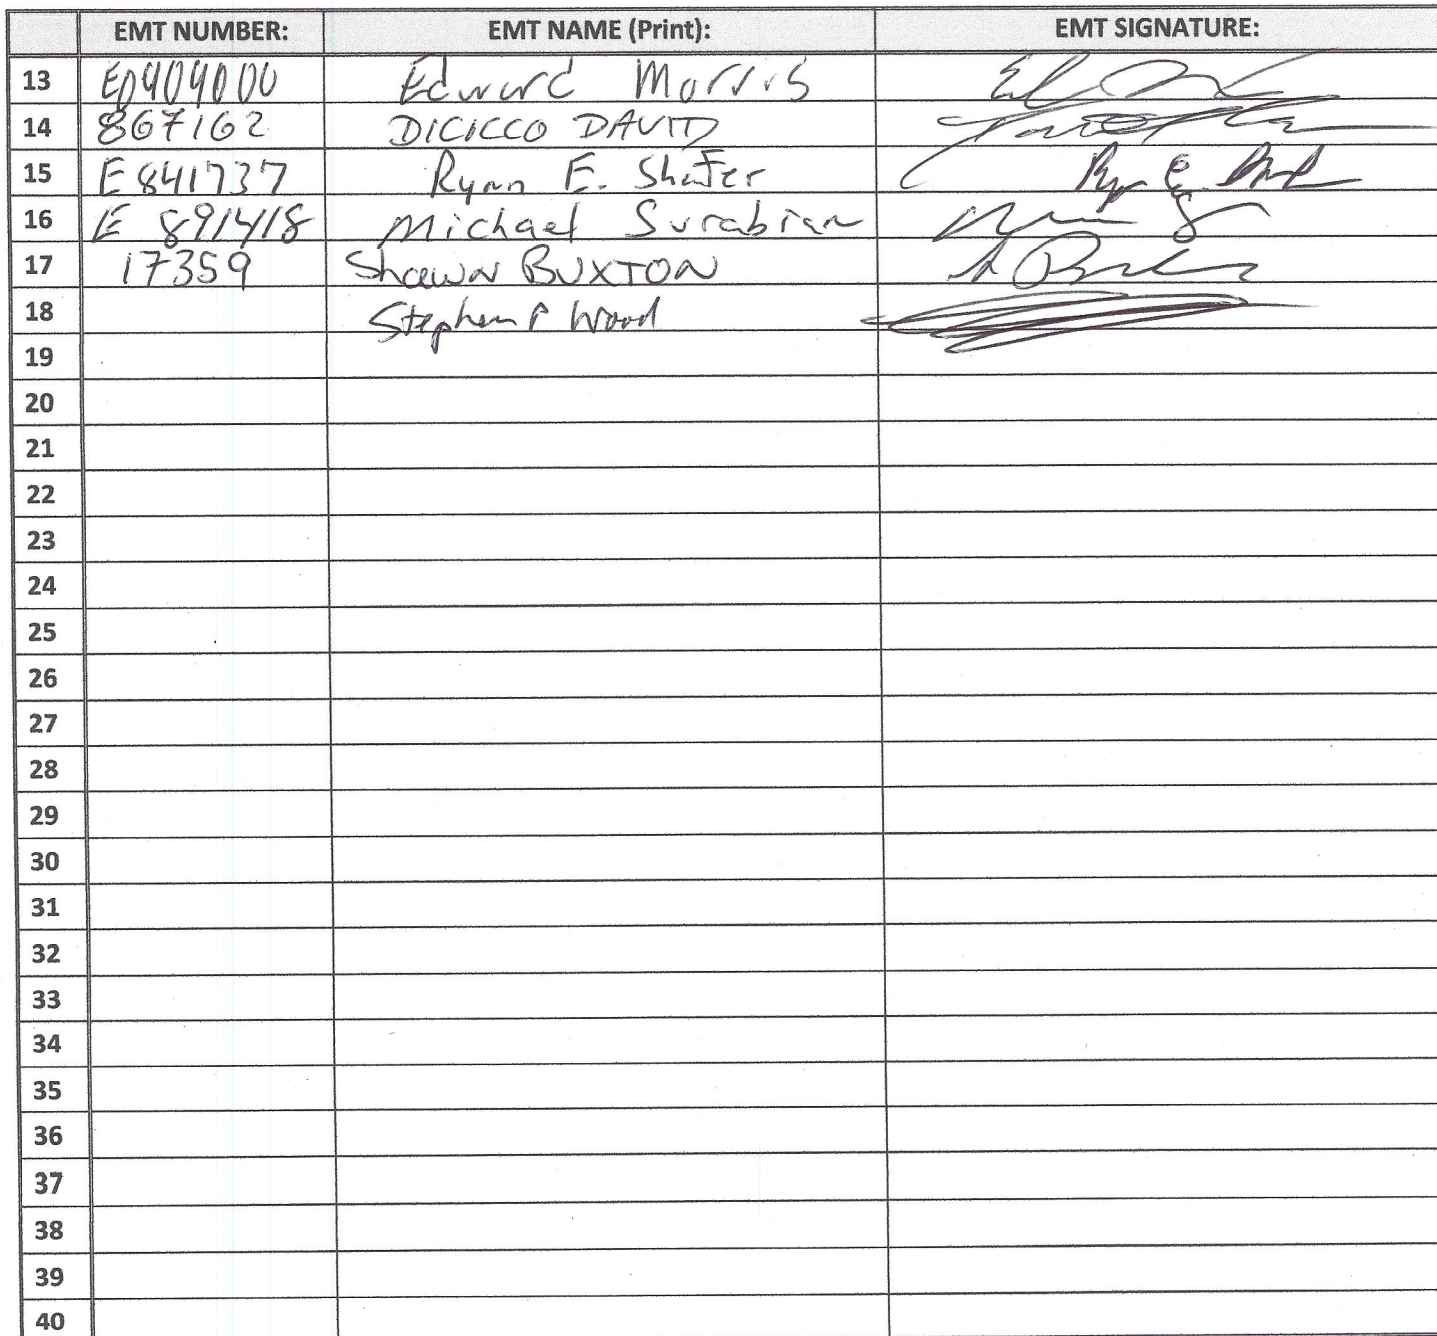 EMT NUMBER: EMT NAME (Print): EMT SIGNATURE:
13 E0904000 Edward Morris
14 867162 DICICCO DAVID
15 E841737 Ryan E. Shafer
16 E 891418 Michael Surabian
17 17359 Shawn BUXTON
18 Stephen P Wood
19
20
21
22
23
24
25
26
27
28
29
30
31
32
33
34
35
36
37
38
39
40